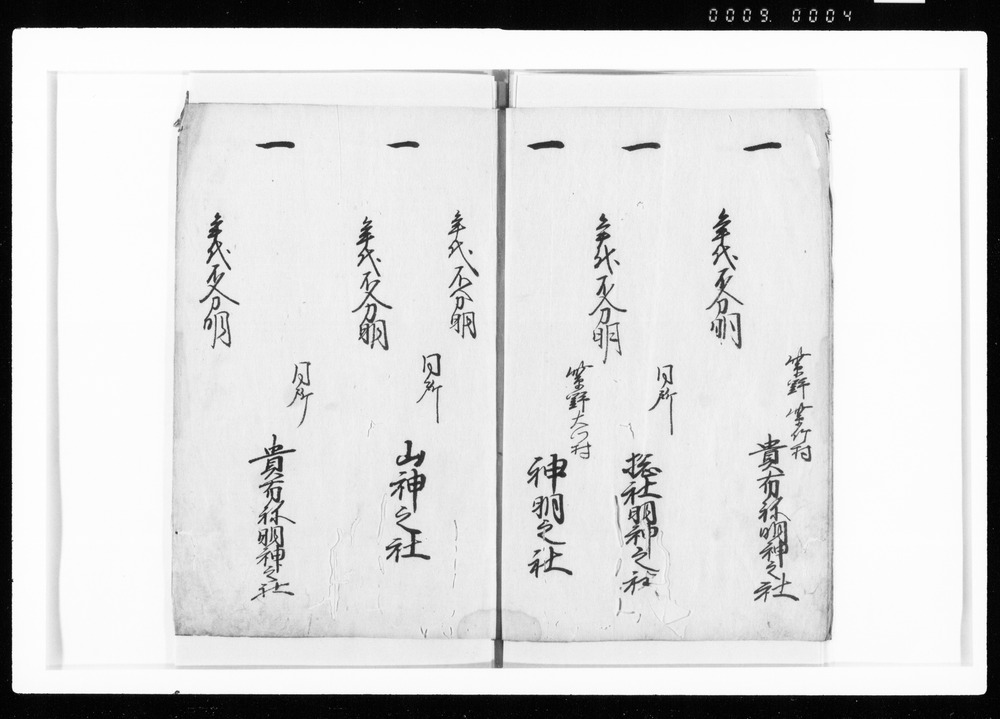 0009. 0004
一
貴布祢明神之社
年代不分明
一 同所
惣社明神之社
年代不分明
大門村
一 神明之社
年代不分明
一 同所
山神之社
年代不分明
一 同所
貴布祢明神之社
年代不分明